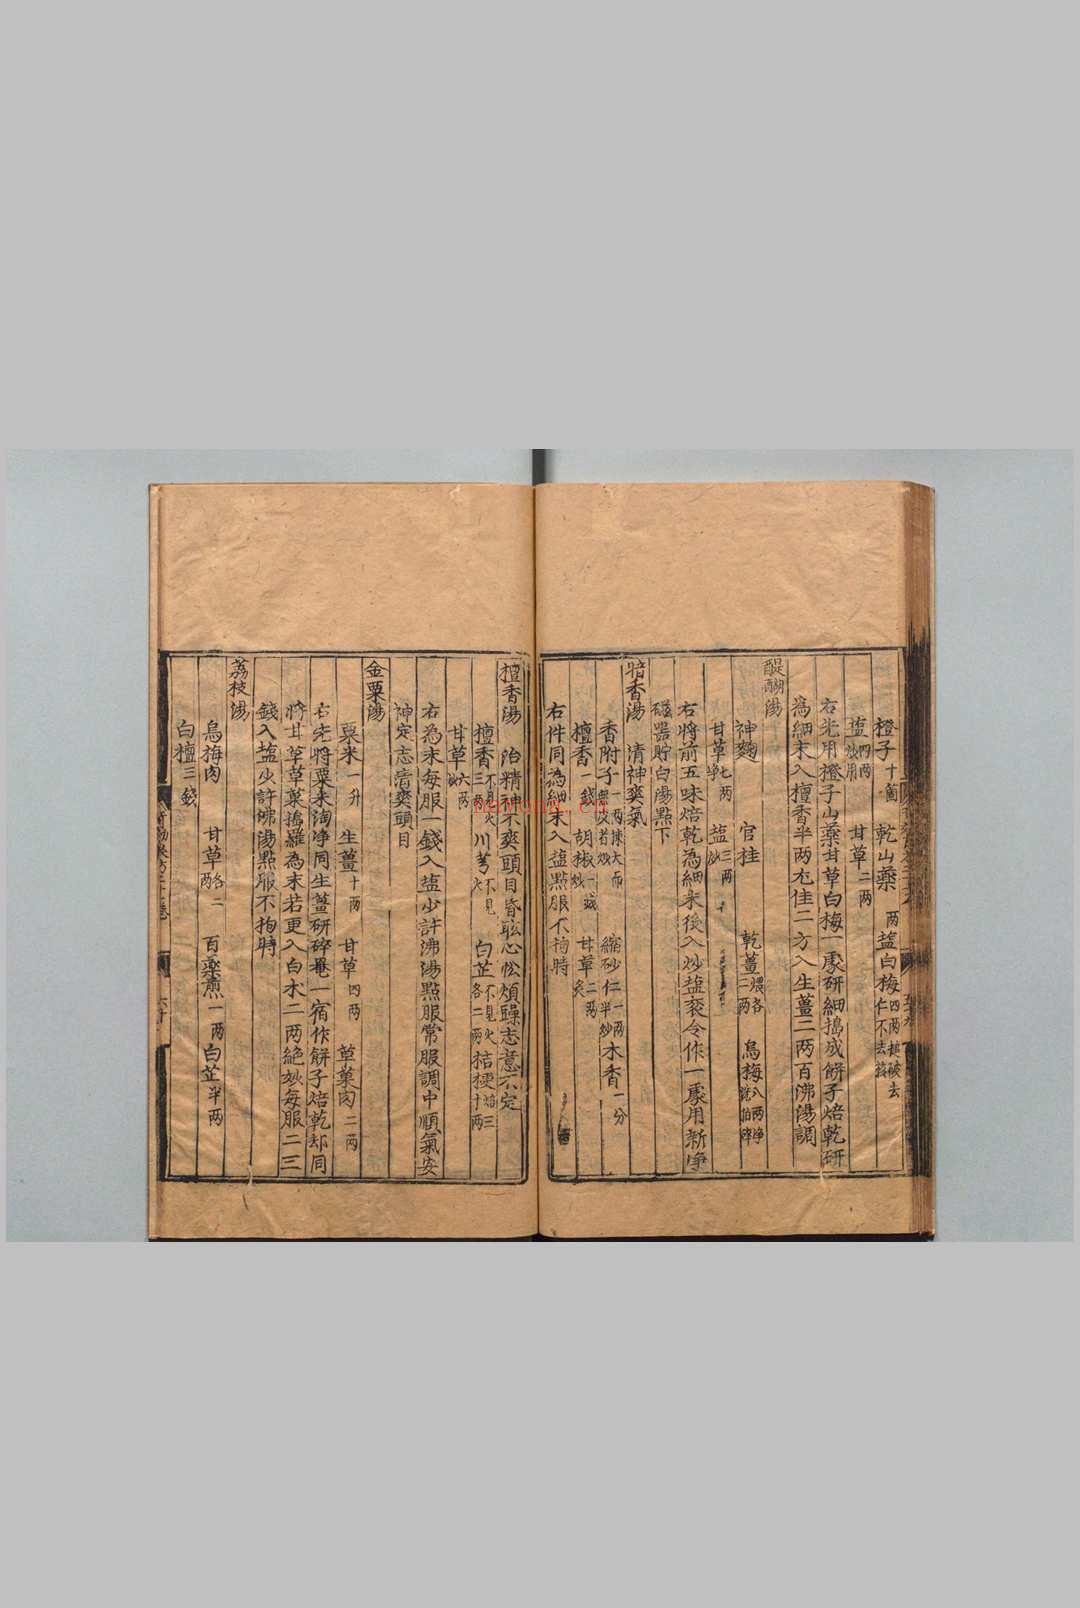 橙子十箇 乾山藥一两 塩白梅四两搥破去仁不去核
塩四两炒用 甘草二两
右先用橙子山藥甘草白梅一處研細搗成餅子焙乾研
為細末入檀香半两尤佳二方入生薑二两百沸湯調
醍醐湯
神麴 官桂 乾薑煨各二两 烏梅八两淨搥拍碎
甘草七两 塩三两炒
右將前五味焙乾為細末後入炒塩衮令作一處用新淨
磁器貯白湯點下
暗香湯 清神爽氣
香附子一两 縮砂仁一两半炒 木香一分
檀香一錢 胡椒一錢炒 甘草二两炙
右件同為細末入塩點服不拘時
檀香湯 治精神不爽頭目昏眩心忪煩躁志意不定
檀香三两不見火 川芎不見火 白芷各二两不見火 桔梗焙三十两
甘草六两炒
右為末每服一錢入塩少許沸湯點服常服調中順氣安
神定志清爽頭目
金粟湯
粟米一升 生薑十两 甘草四两 草菓肉二两
右先將粟米淘淨同生薑研碎罨一宿作餅子焙乾却同
將甘草草菓搗羅為末若更入白朮二两絕妙每服二三
錢入塩少許沸湯點服不拘時
荔枝湯
烏梅肉 甘草各二两 百藥煎一两 白芷半两
白檀三錢